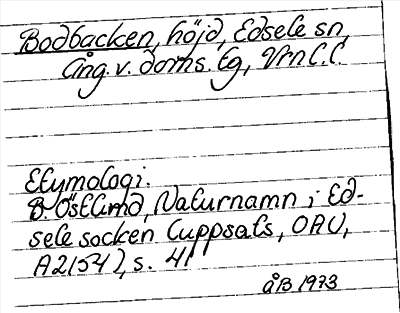 Bodbacken, höjd, Edsele sn,
Ång. v. doms. Eg, Vrn C.C.
Etymologi.
B. Östlund, Naturnamn i Ed-
sele socken (uppsats, OAU,
A2154), s. 41
åB 1973